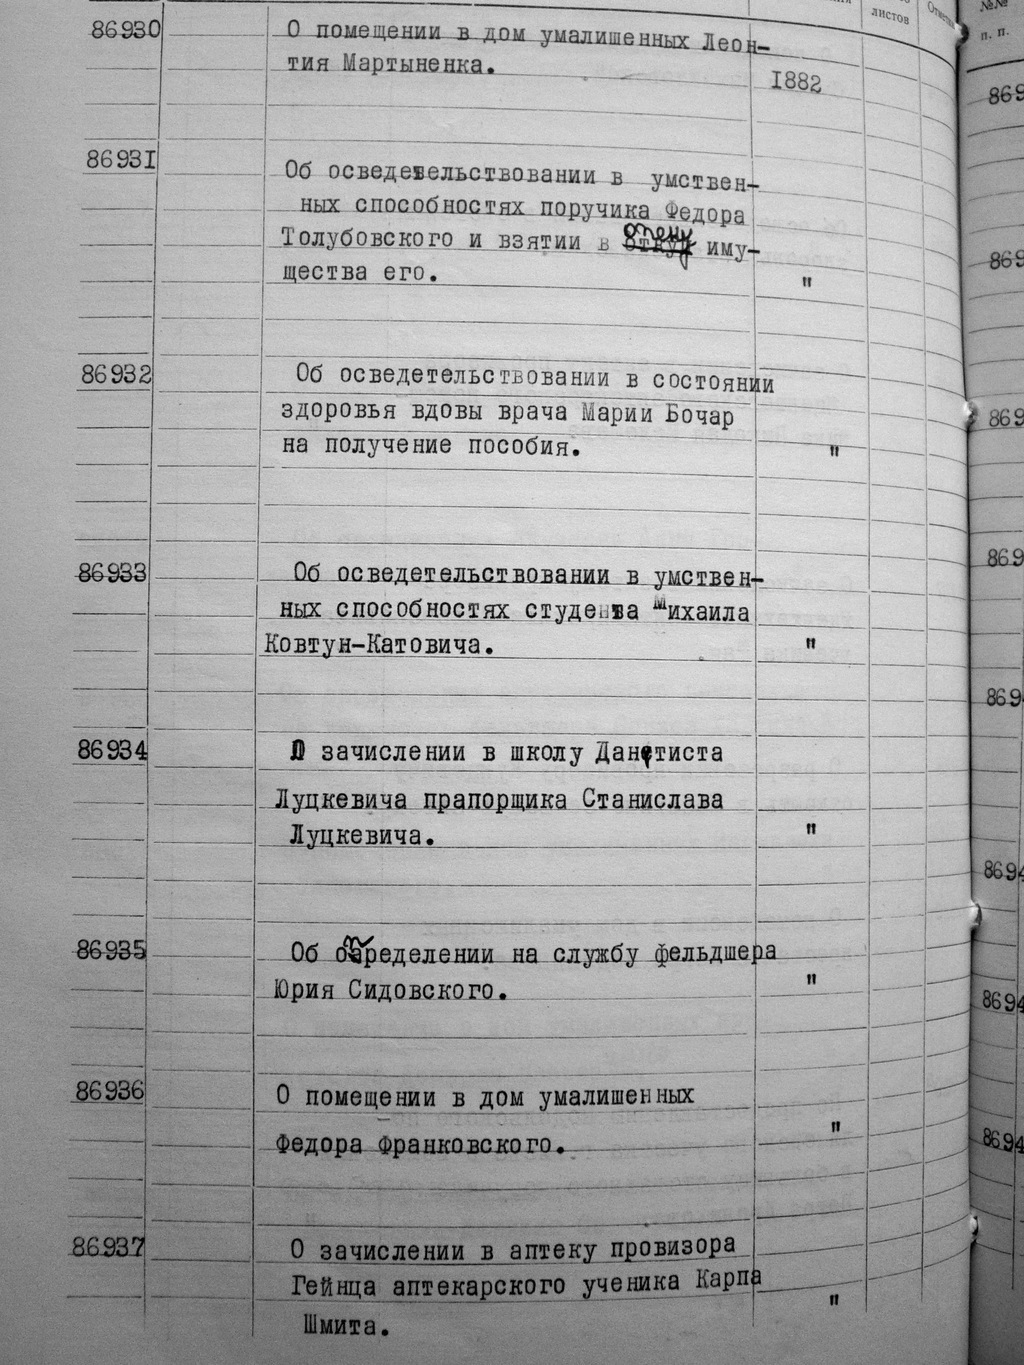 листов
№№
п. п.
86930 О помещении в дом умалишенных Леон-
тия Мартыненка.
1882
86931 Об осведетельствовании в умствен-
ных способностях поручика Федора
Толубовского и взятии в опеку иму-
щества его. "
86932 Об осведетельствовании в состоянии
здоровья вдовы врача Марии Бочар
на получение пособия. "
86933 Об осведетельствовании в умствен-
ных способностях студента Михаила
Ковтун-Катовича. "
86934 О зачислении в школу Дантиста
Луцкевича прапорщика Станислава
Луцкевича. "
86935 Об определении на службу фельдшера
Юрия Сидовского. "
86936 О помещении в дом умалишенных
Федора Франковского. "
86937 О зачислении в аптеку провизора
Гейнца аптекарского ученика Карпа
Шмита. "